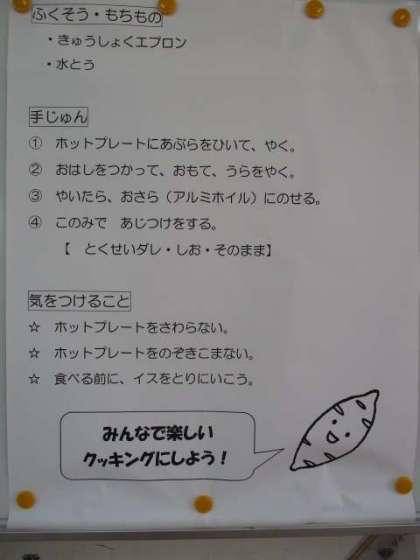 ふくそう・もちもの
・きゅうしょくエプロン
・水とう
手じゅん
① ホットプレートにあぶらをひいて、やく。
② おはしをつかって、おもて、うらをやく。
③ やいたら、おさら（アルミホイル）にのせる。
④ このみで　あじつけをする。
【　とくせいダレ・しお・そのまま】
気をつけること
☆ ホットプレートをさわらない。
☆ ホットプレートをのぞきこまない。
☆ 食べる前に、イスをとりにいこう。
みんなで楽しい
クッキングにしよう！